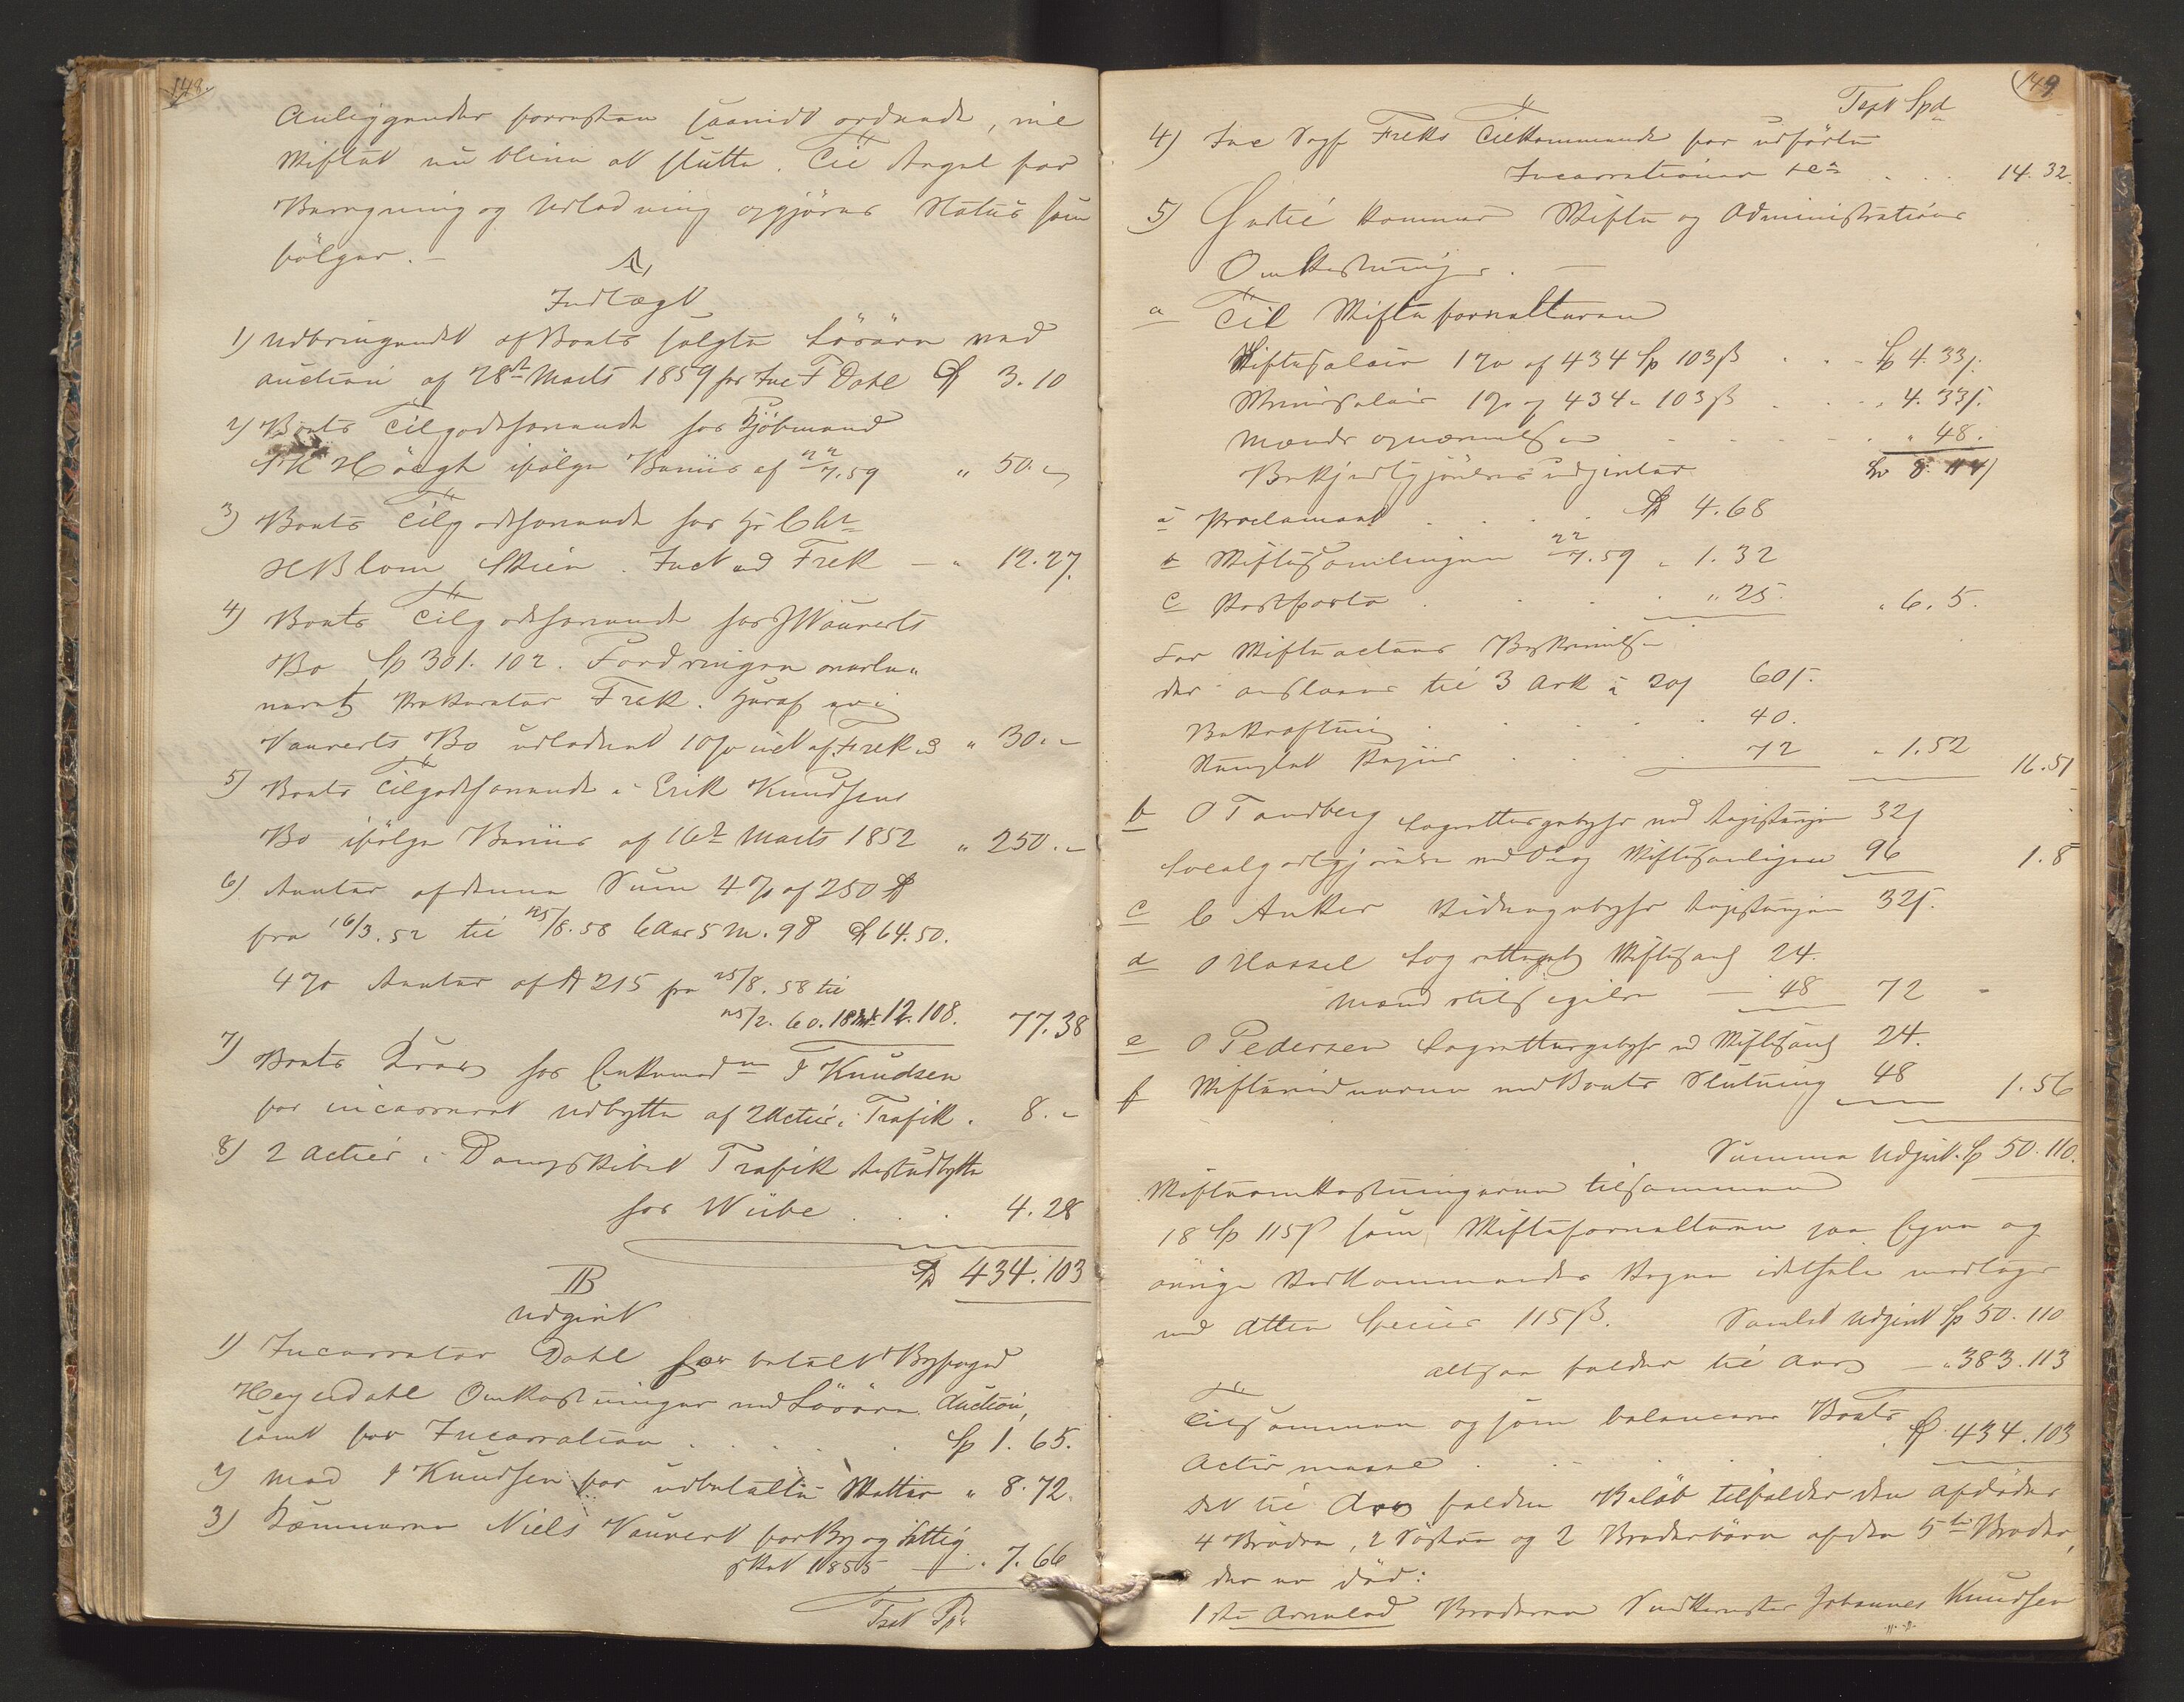 148.
Anliggender forresten saavidt ordnede, vil
Skiftet nu blive at slutte. Til Angel for
Beregning og Udlodning opgjøres Status som
følger.
A,
Indtægt
1) Udbringendet af Boets solgte Løsøre ved
auction af 28de Marts 1859 hos Inc F Dahl 3.10
2) Boets Tilgodehavende hos Kjøbmand
Høegh ifølge Beviis af 22/7.59 " 50."
3) Boets Tilgodehavende hos Hr
H Blom Skien. Inct ved Frek - " 12.27.
4) Boets Tilgodehavende hos Wauverts
Bo Sp 301.102. Fordringen overle-
veret Prokurator Frek. Heraf er i
Vauverts Bo udloddet 10% inct af Frek " 30."
5) Boets Tilgodehavende i Erik Knudsens
Bo ifølge Beviis af 16de Marts 1852 " 250."
6) Renter af denne Sum 4% af 250
fra 16/3.52 til 25/8.58 6 Aar 5 M. 9 D 64.50.
4% Renter af 215 fra 25/8.58 til
25/2.60. 18 12.108. 77.38
7) Boets Krav hos J Knudsen
for incasseret Udbytte af 2 Actier i Trafik. 8."
8) 2 Actier i Dampskibet Trafik Restudbytte
hos Wiibe . . . 4.28
434.103
B
Udgivt
1) Incassator Dahl har betalt Byfoged
Heyerdahl Omkostninger ved Løsøre Auction,
samt for Incassation . . . . Sp 1.65.
2) Mad J Knudsen for udbetalte Skatter " 8.72.
3) Kæmneren Niels Vauvert for By og Fattig
skat 1855 — " 7.66
Tspt Sp
149
Tspt Spd
4) Inc Sagf Freks Tilkommende for udførte
Incassationer . . . 14.32.
5) Hertil kommer Skifte og Administrations
Omkostninger. —
a Til Skifteforvalteren
Skiftesalair 1% af 434 Sp 103 ß . . Sp 4.33ß.
Skriversalair 1% af 434 " 103 ß . . " 4.33ß.
Mænds opnævnelse . . . . " 48.
Bekjendtgjørelses udgivter
a Proclamaet . . . . 4.68
b Skiftesamlingen 22/7.59 " 1.32
c Postporto . . . . " 25. " 6.5.
For Skifteactens Beskrivelse
der anslaaes til 3 Ark à 20ß 60ß.
Bekræftning . . . . 40.
Stemplet Papiir . . . . 72 " 1.52 16.51
b O Tandberg Lagrettesgebyhr ved Registeringen 32ß
Localgodtgjørelse ved og Skiftesamlingen 96 1.8
c C Anker Vidnegebyhr Registeringen 32ß.
d O Hassel Lagrettegeb Skiftesaml 24.
Mand — 48 72
e O Pedersen Lagrettesgebyhr ved Skiftesaml 24.
f Skiftevidnerne ved Boets Slutning 48 1.56
Summa Udgivt. Sp 50.110.
Skifteomkostningerne tilsammen
18 Sp 115 ß som Skifteforvalteren paa Egne og
øvrige Vedkommendes Vegne idethele modtager
med Atten Species 115 ß. Samlet Udgivt Sp 50.110
altsaa falder til Arv — " 383.113
Tilsammen og som balancerer Boets
Activmasse . . . . 434.103
Det til Arv faldne Beløb tilfalder den afdødes
4 Brødre, 2 Søstre og 2 Broderbørn af den 5te Broder,
der er død:
1ste Arvelod Broderen Snedkermester Johannes Knudsen